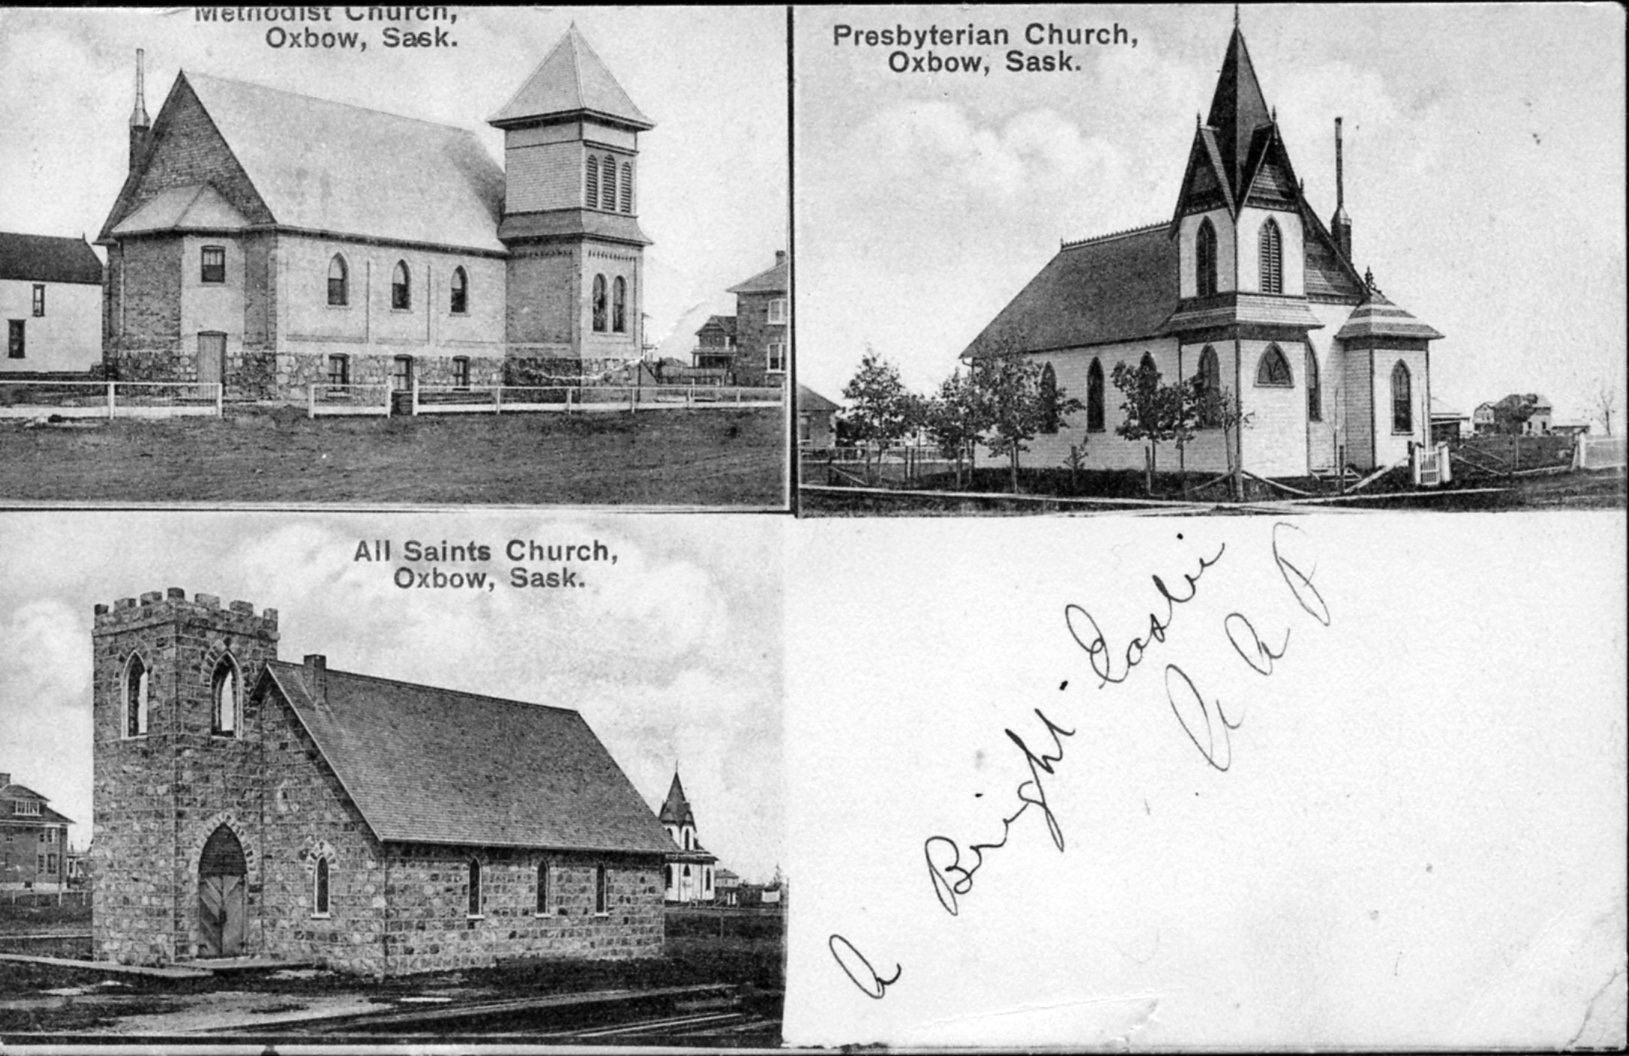 Methodist Church,
Oxbow, Sask.
Presbyterian Church,
Oxbow, Sask.
All Saints Church,
Oxbow, Sask.
A Bright
A A P